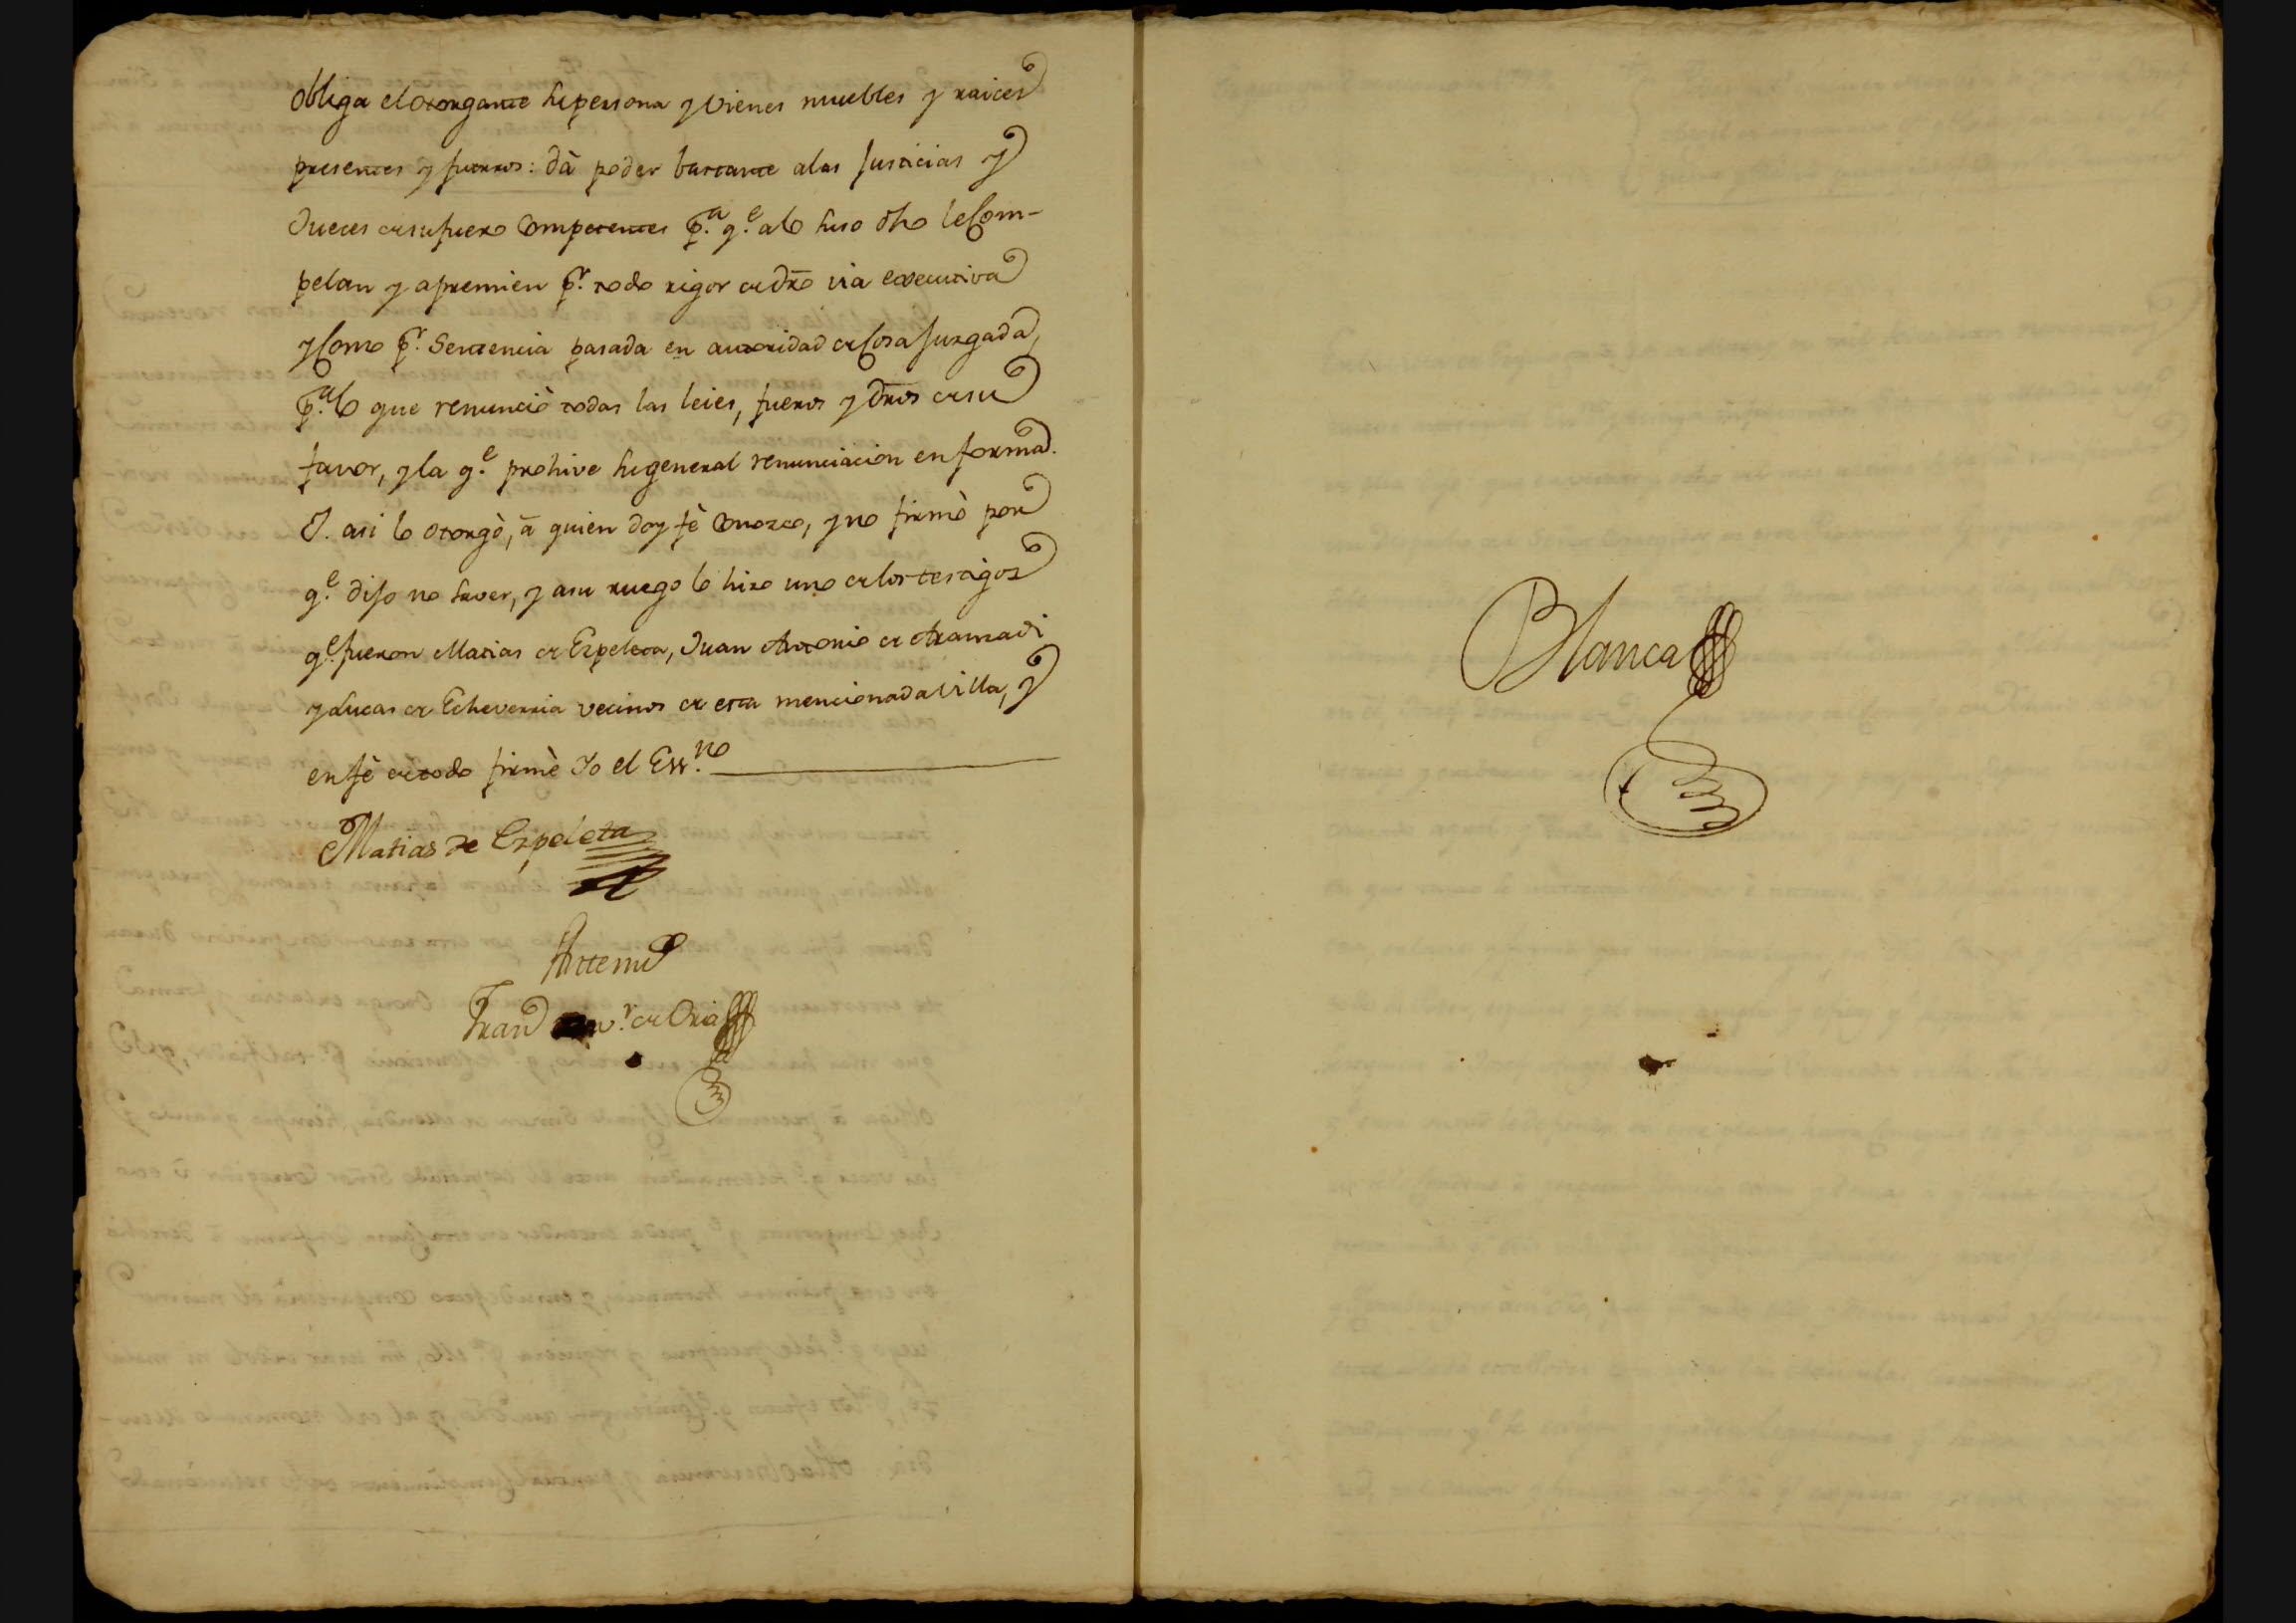 obliga el otorgante su persona y vienes muebles y raices
presentes y futuros: dà poder bastante a las Justicias y
Jueces de su fuero Competentes p.ª q.e a lo suso dho le Com-
pelan y apremien p.r todo rigor de dro via executiva
y Como p.r Sentencia pasada en autoridad de Cosa Juzgada,
p.ª lo que renunciò todas las leies, fueros y dros de su
favor, y la q.e prohive la general renunciacion en forma.
I. asi lo otorgò, à quien doy fè Conozco, y no firmò por
q.e dijo no saver, y a su ruego lo hizo uno de los testigos
q.e fueron Matias de Ezpeleta, Juan Antonio de Aramadi
y Lucas de Echeverria vecinos de esta mencionada Villa, y
en fè de todo firmè Yo el Ess.no
Matias de Ezpeleta
Antemi
Fran.co Xav.r de Oria
Blanca